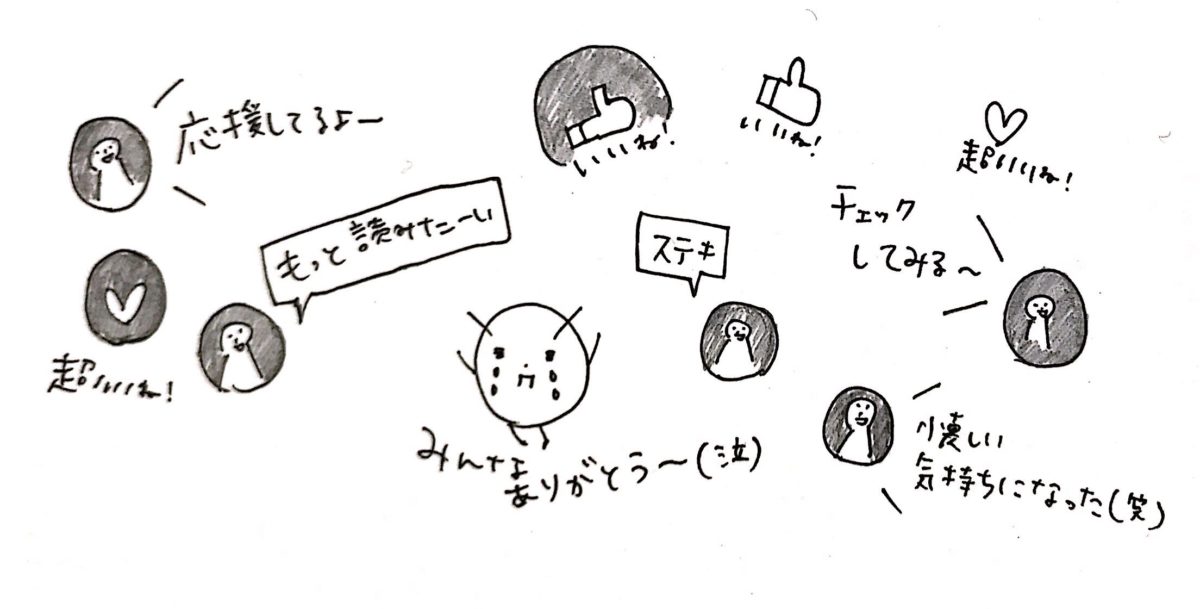 応援してるよ〜
いいね!
いいね!
超いいね!
もっと読みたーい
ステキ
チェック
してみる〜
超いいね!
みんな
ありがとう〜(泣)
懐しい
気持ちになった(笑)